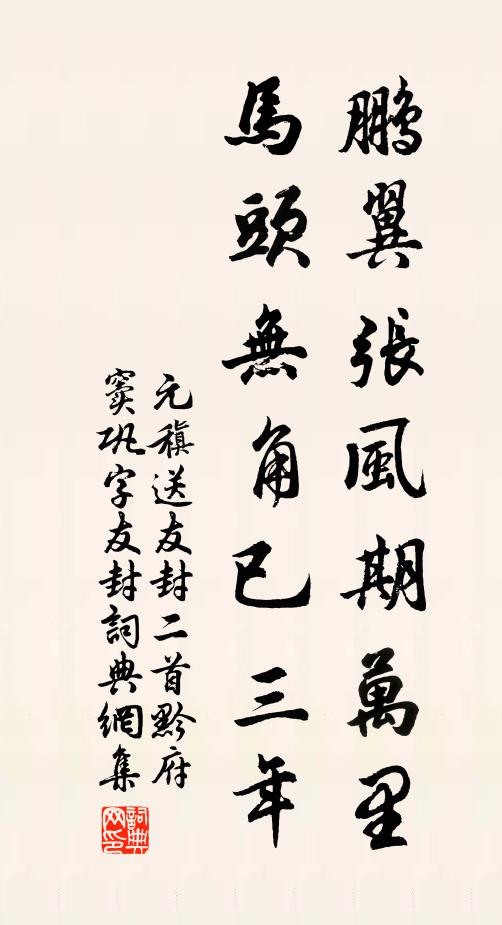 鵬翼張風期萬里
馬頭無角已三年
元稹送友封二首黔府
竇鞏字友封詞典網集
詞典網印